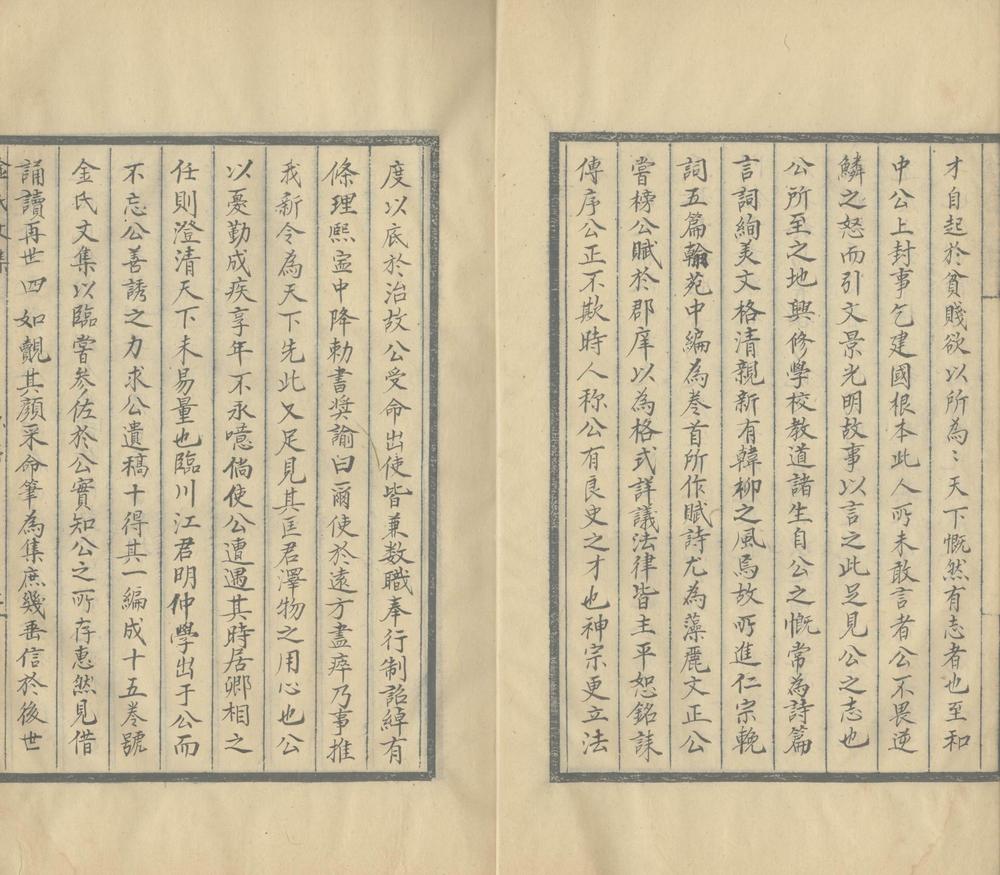 才自起於貧賤欲以所為〻天下慨然有志者也至和
中公上封事乞建國根本此人所未敢言者公不畏逆
鱗之怒而引文景光明故事以言之此足見公之志也
公所至之地興修學校教道諸生自公之慨常為詩篇
言詞絢美文格清親新有韓柳之風焉故所進仁宗輓
詞五篇翰苑中編為巻首所作賦詩尤為藻麗文正公
嘗榜公賦於郡庠以為格式詳議法律皆主平恕銘誄
傳序公正不欺時人称公有良史之才也神宗更立法
度以底於治故公受命出使皆兼数職奉行制詔綽有
條理熙寍中降勅書奨諭曰爾使於遠方盡瘁乃事推
我新令為天下先此又足見其匡君澤物之用心也公
以憂勤成疾享年不永噫倘使公遭遇其時居卿相之
任則澄清天下未易量也臨川江君明仲學出于公而
不忘公善誘之力求公遺稿十得其一編成十五巻號
金氏文集以臨嘗参佐於公實知公之所存惠然見借
誦讀再世四 如覿其顔采命筆為集庶幾垂信於後世
金氏文集